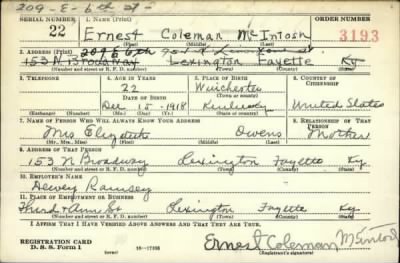 209 - E - 6th St -
SERIAL NUMBER 1. NAME (Print) ORDER NUMBER
22 Ernest Coleman McIntosh 3193
(First) (Middle) (Last)
2. ADDRESS (Print) 209 E 6th
153 N Broadway Lexington Fayette Ky
(Number and street or R. F. D. number) (Town) (County) (State)
3. TELEPHONE 4. AGE IN YEARS 5. PLACE OF BIRTH 6. COUNTRY OF CITIZENSHIP
22 Winchester
DATE OF BIRTH (Town or county)
Dec 15 - 1918 Kentucky United States
(Exchange) (Number) (Mo.) (Day) (Yr.) (State or country)
7. NAME OF PERSON WHO WILL ALWAYS KNOW YOUR ADDRESS 8. RELATIONSHIP OF THAT PERSON
Mrs Elizabeth Owens Mother
(Mr., Mrs., Miss) (First) (Middle) (Last)
9. ADDRESS OF THAT PERSON
153 N Broadway Lexington Fayette Ky.
(Number and street or R. F. D. number) (Town) (County) (State)
10. EMPLOYER'S NAME
Dewey Ramsey
11. PLACE OF EMPLOYMENT OR BUSINESS
Third & Ann St Lexington Fayette Ky.
(Number and street or R. F. D. number) (Town) (County) (State)
I AFFIRM THAT I HAVE VERIFIED ABOVE ANSWERS AND THAT THEY ARE TRUE.
REGISTRATION CARD
D. S. S. FORM 1 16-17105 Ernest Coleman McIntosh
(over) (Registrant's signature)